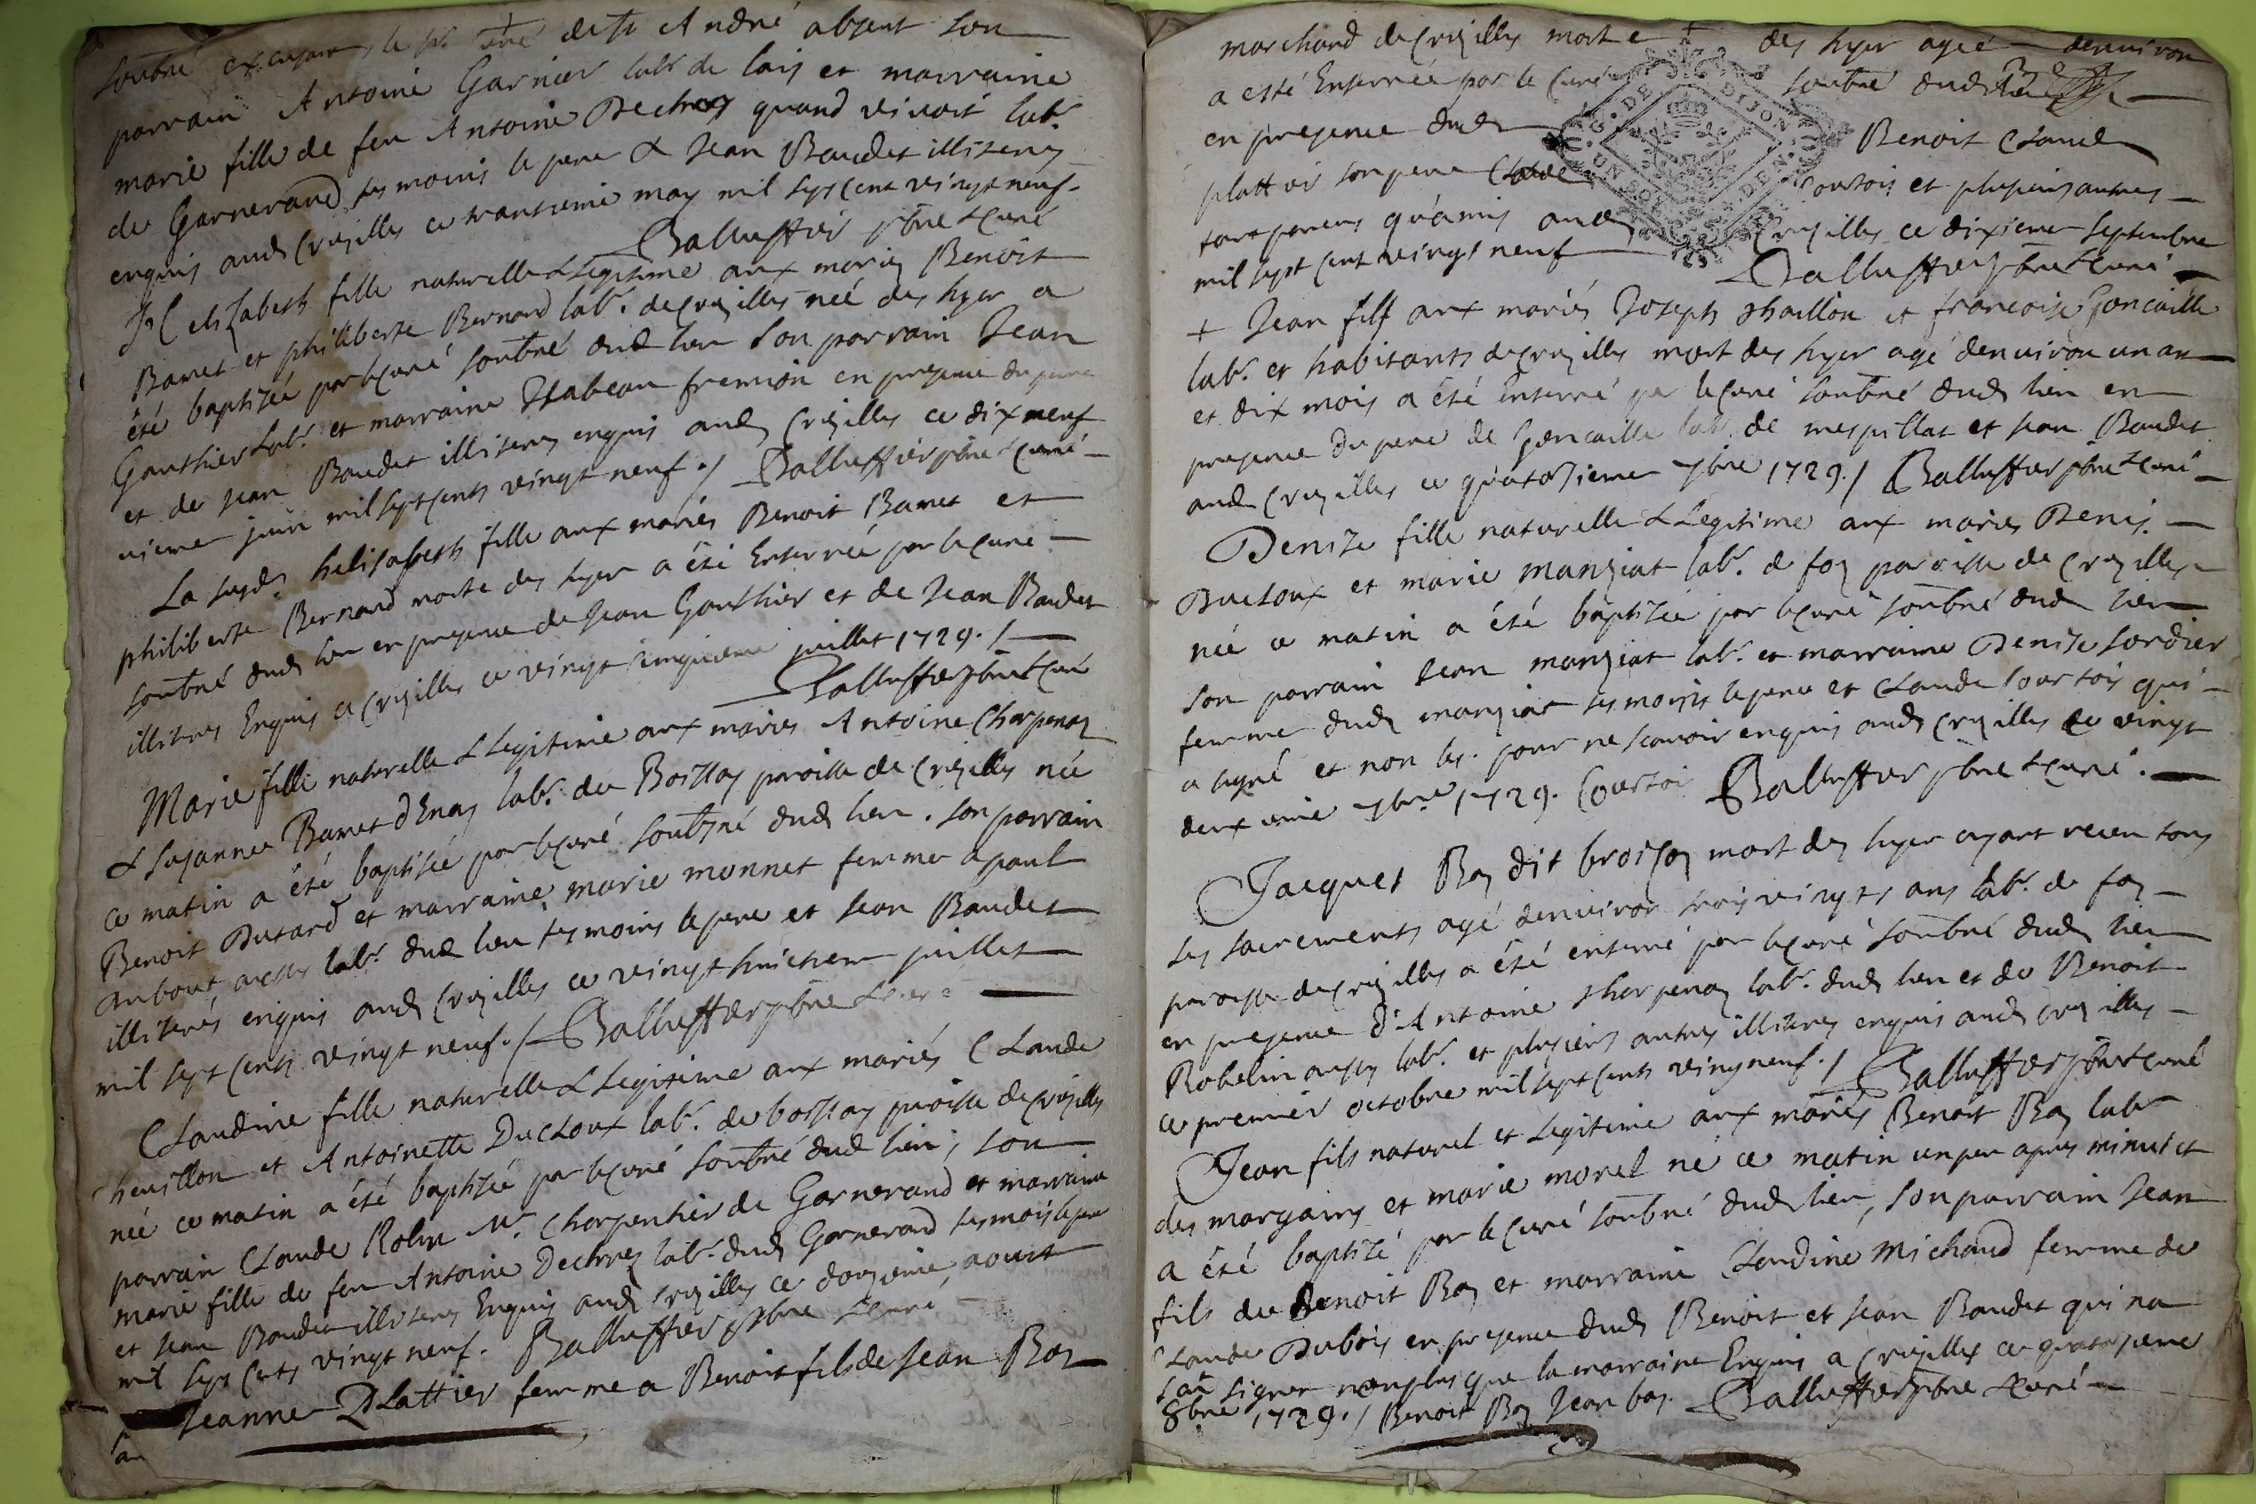 soubné le sr curé de St André absent son
parrain Antoine Garnier labr de lais et marraine
marie fille de feu Antoine Dechrey quand vivoit labr
de Garnerand tesmoins le pere & Jean Baudet illiterés
enquis aud Cruzilles ce trantieme may mil sept cent vingt neuf.
Balluffier pbre & curé
elizabeth fille naturelle & legitime aux mariez Benoist
Bamet et philiberte Bernard labr. de Cruzilles née des hyer a
été baptizée par le curé soubné dud lieu son parrain Jean
Gauthier labr. et marraine Izabeau fremion en presence du pere
et de Jean Baudet illiterés enquis aud Cruzilles ce dix neuf
vieme juin mil sept cents vingt neuf ./ Balluffier pbre & curé
La susd. helisabeth fille aux mariés Benoit Bamet et
philiberte Bernard morte des hyer a été Enterrée par le curé
soubné dud lieu en presence de Jean Gauthier et de Jean Baudet
illitérés Enquis a Cruzilles ce vingt cinquieme juillet 1729 ./
Balluffier pbre & curé
Marie fille naturelle & legitime aux mariés Antoine Charpenay
& Susanne Bamet d'Enay labr. de Boissay paroisse de Cruzilles née
ce matin a été baptisée par le curé soubsné dud lieu. son parrain
Benoit Dutard et marraine marie monnet femme a paul
aussy labr. dud lieu tesmoins le pere et Jean Baudet
illiterés enquis aud Cruzilles ce vingt huitieme juillet
mil sept cents vingt neuf ./ Balluffier pbre & curé
Claudine fille naturelle & legitime aux mariés Claude
et Antoinette Ducloux labr. de boissay paroisse de Cruzilles
née ce matin a été baptizée par le curé soubné dud lieu, son
parrain Claude Robin Mr. Charpentier de Garnerand et marraine
marie fille de feu Antoine Dechrey labr. dud Garnerand tesmois le pere
et Jean Baudet illiterés Enquis aud Cruzilles ce douzieme aoust
mil sept cents vingt neuf. Balluffier pbre & curé
Jeanne Plattier femme a Benoist fils de Jean Bay
marchand de Cruzilles morte des hyer agée denviron
a esté Enterrée par le curé soubné dud
en presence dud Benoit Claude
plattier son pere Claude Courtois et plusieurs autres
tant parens qu'amis aud Cruzilles ce dixieme septembre
mil sept cent vingt neuf Balluffier pbre & curé
+ Jean fils aux mariés Joseph et francoise Goncaille
labr. et habitants de Cruzilles mort des hyer agé denviron un an
et dix mois a été enterré par le curé soubné dud lieu en
presence du pere de Goncaille labr. de mespillat et Jean Baudet
aud Cruzilles ce quatorzieme 7bre 1729 ./ Balluffier pbre & curé
Denize fille naturelle & Legitime aux mariés Denis
Ducloux et marie manziat labr. de foy paroisse de Cruzilles
née ce matin a été baptizée par le curé soubné dud lieu
son parrain Jean manziat labr. et marraine Denize Cordier
femme dud manziat tesmoins le pere et Claude Courtois qui
a signé et non les. pour ne scavoir enquis aud Cruzilles ce vingt
deuxieme 7bre 1729. Courtois Balluffier pbre & curé.
Jacques Bay dit broisey mort des hyer ayant receu tous
les sacrements agé denviron trois vingts ans labr. de foy
paroisse de Cruzilles a été enterré par le curé soubné dud lieu
en presence d'Antoine Charpenay labr. dud lieu et de Benoit
Robelin aussy labr. et plusieurs autres illiterés enquis aud Cruzilles
ce premier octobre mil sept cents vingneuf ./ Balluffier pbre & curé
Jean fils naturel et legitime aux mariés Benoit Bay labr
des margains et marie morel né ce matin un peu apres minuict
a été baptizé par le curé soubné dud lieu, son parrain Jean
fils de Benoit Bay et marraine Claudine Michaud femme de
Claude Dubois en presence dud Benoist et Jean Baudet qui na
signer non plus que la marraine Enquis a Cruzilles ce quatorzieme
8bre 1729 ./ Benoit Bay Jean bay. Balluffier pbre & curé